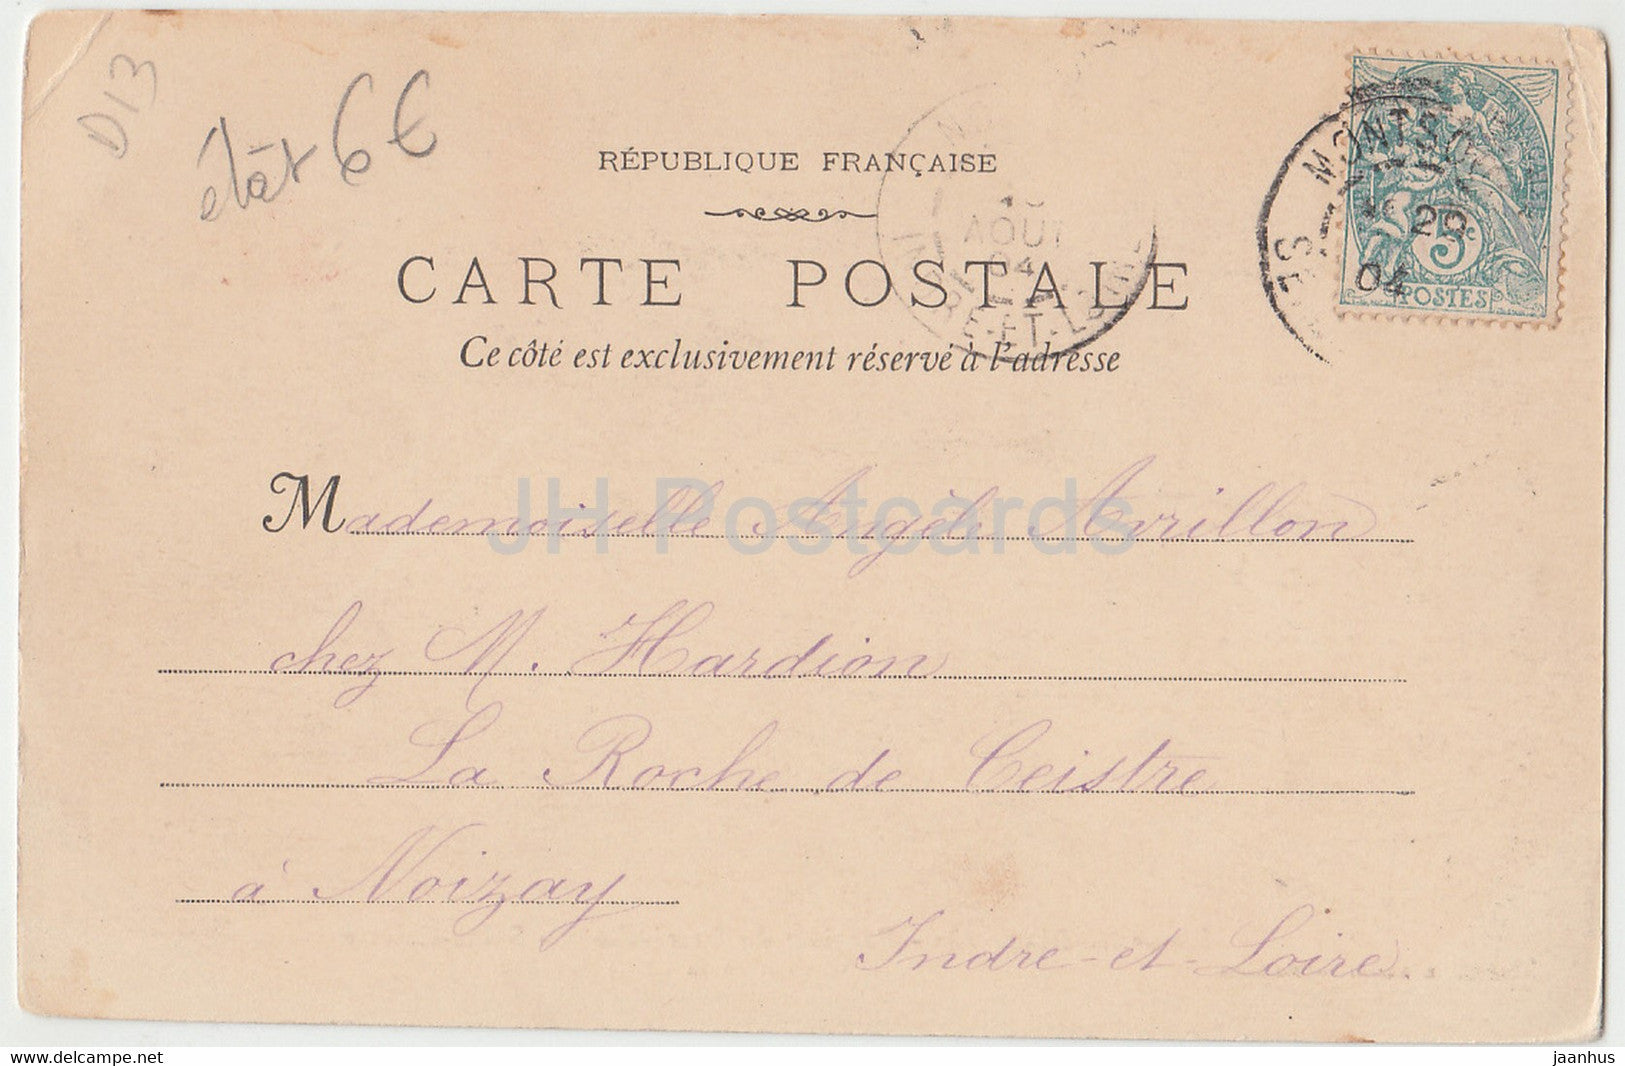 D13
étât 6€
RÉPUBLIQUE FRANÇAISE
CARTE POSTALE
Ce côté est exclusivement réservé à l'adresse
AOÛT
04
ET-LOIRE
MONTS
20
04
5c
POSTES
JH Postcards
Mademoiselle Angèle Avrillon
chez M. Hardion
La Roche de Ceistre
à Noizay
Indre-et-Loire
delcampe.net
jaanhus